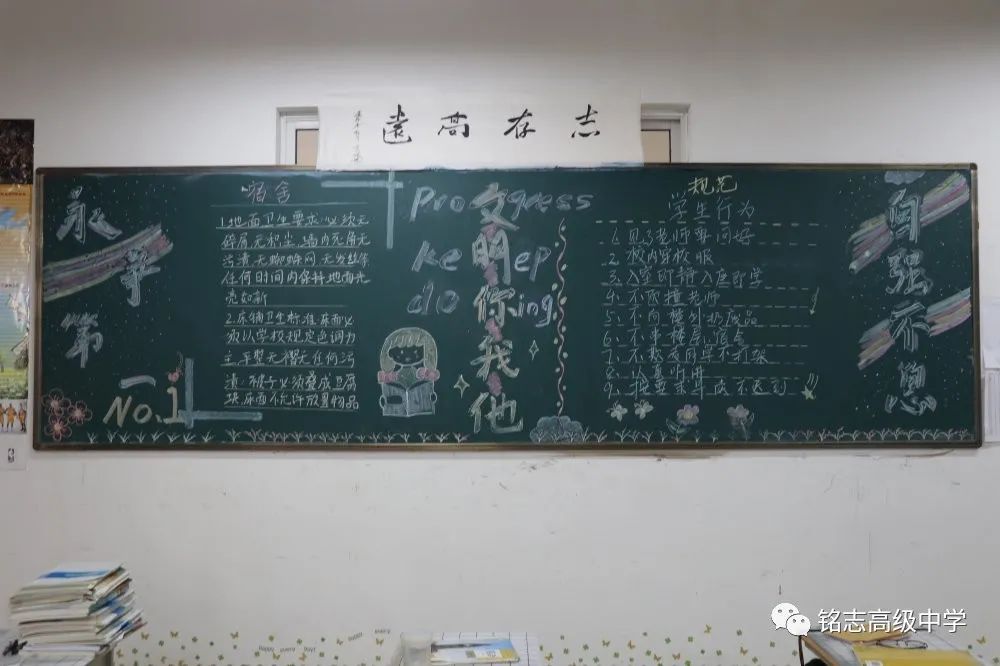 志存高遠
永争第一
NO.1
宿舍
1.地面卫生要求:必须无
碎屑,无积尘,墙内死角无
污渍,无蜘蛛网,无发丝等
任何时间内保持地面光
亮如新
2.床铺卫生标准:床面必
须以学校规定色调为
主,平整无褶无任何污
渍:被子必须叠成豆腐
块,床面不允许放置物品
Progress
keep
doing
文明你我他
规范
学生行为
1.见了老师要问好
2.校内穿校服
3.入室即静入座即学
4.不顶撞老师
5.不向楼外扔废品
6.不串楼层,宿舍
7.不
8.认真听讲
9.
自强不息
铭志高级中学